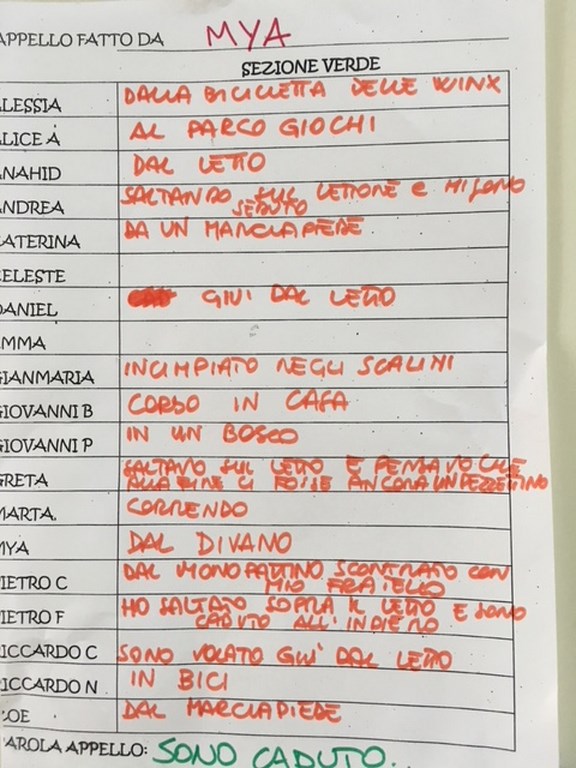 APPELLO FATTO DA MYA
SEZIONE VERDE
LESSIA DALLA BICICLETTA DELLE WINX
LICE A AL PARCO GIOCHI
NAHID DAL LETTO
NDREA SALTANDO SUL LETTONE e MI SONO
SEDUTO
ATERINA DA UN MARCIAPIEDE
ELESTE
DANIEL GIU' DAL LETTO
MMA
GIANMARIA INCIMPIATO NEGLI SCALINI
GIOVANNI B CORSO IN CASA
GIOVANNI P IN UN BOSCO
GRETA SALTAVO SUL LETTO E PENSAVO CHE
ALLA FINE CI FOSSE ANCORA UN PEZZETTINO
MARTA. CORRENDO
MYA DAL DIVANO
IETRO C DAL MONOPATTINO SCONTRATO CON
MIO FRATELLO
IETRO F HO SALTATO SOPRA IL LETTO E SONO
CADUTO ALL'INDIETRO
RICCARDO C SONO VOLATO GIU' DAL LETTO
RICCARDO N IN BICI
OE DAL MARCIAPIEDE
AROLA APPELLO: SONO CADUTO.